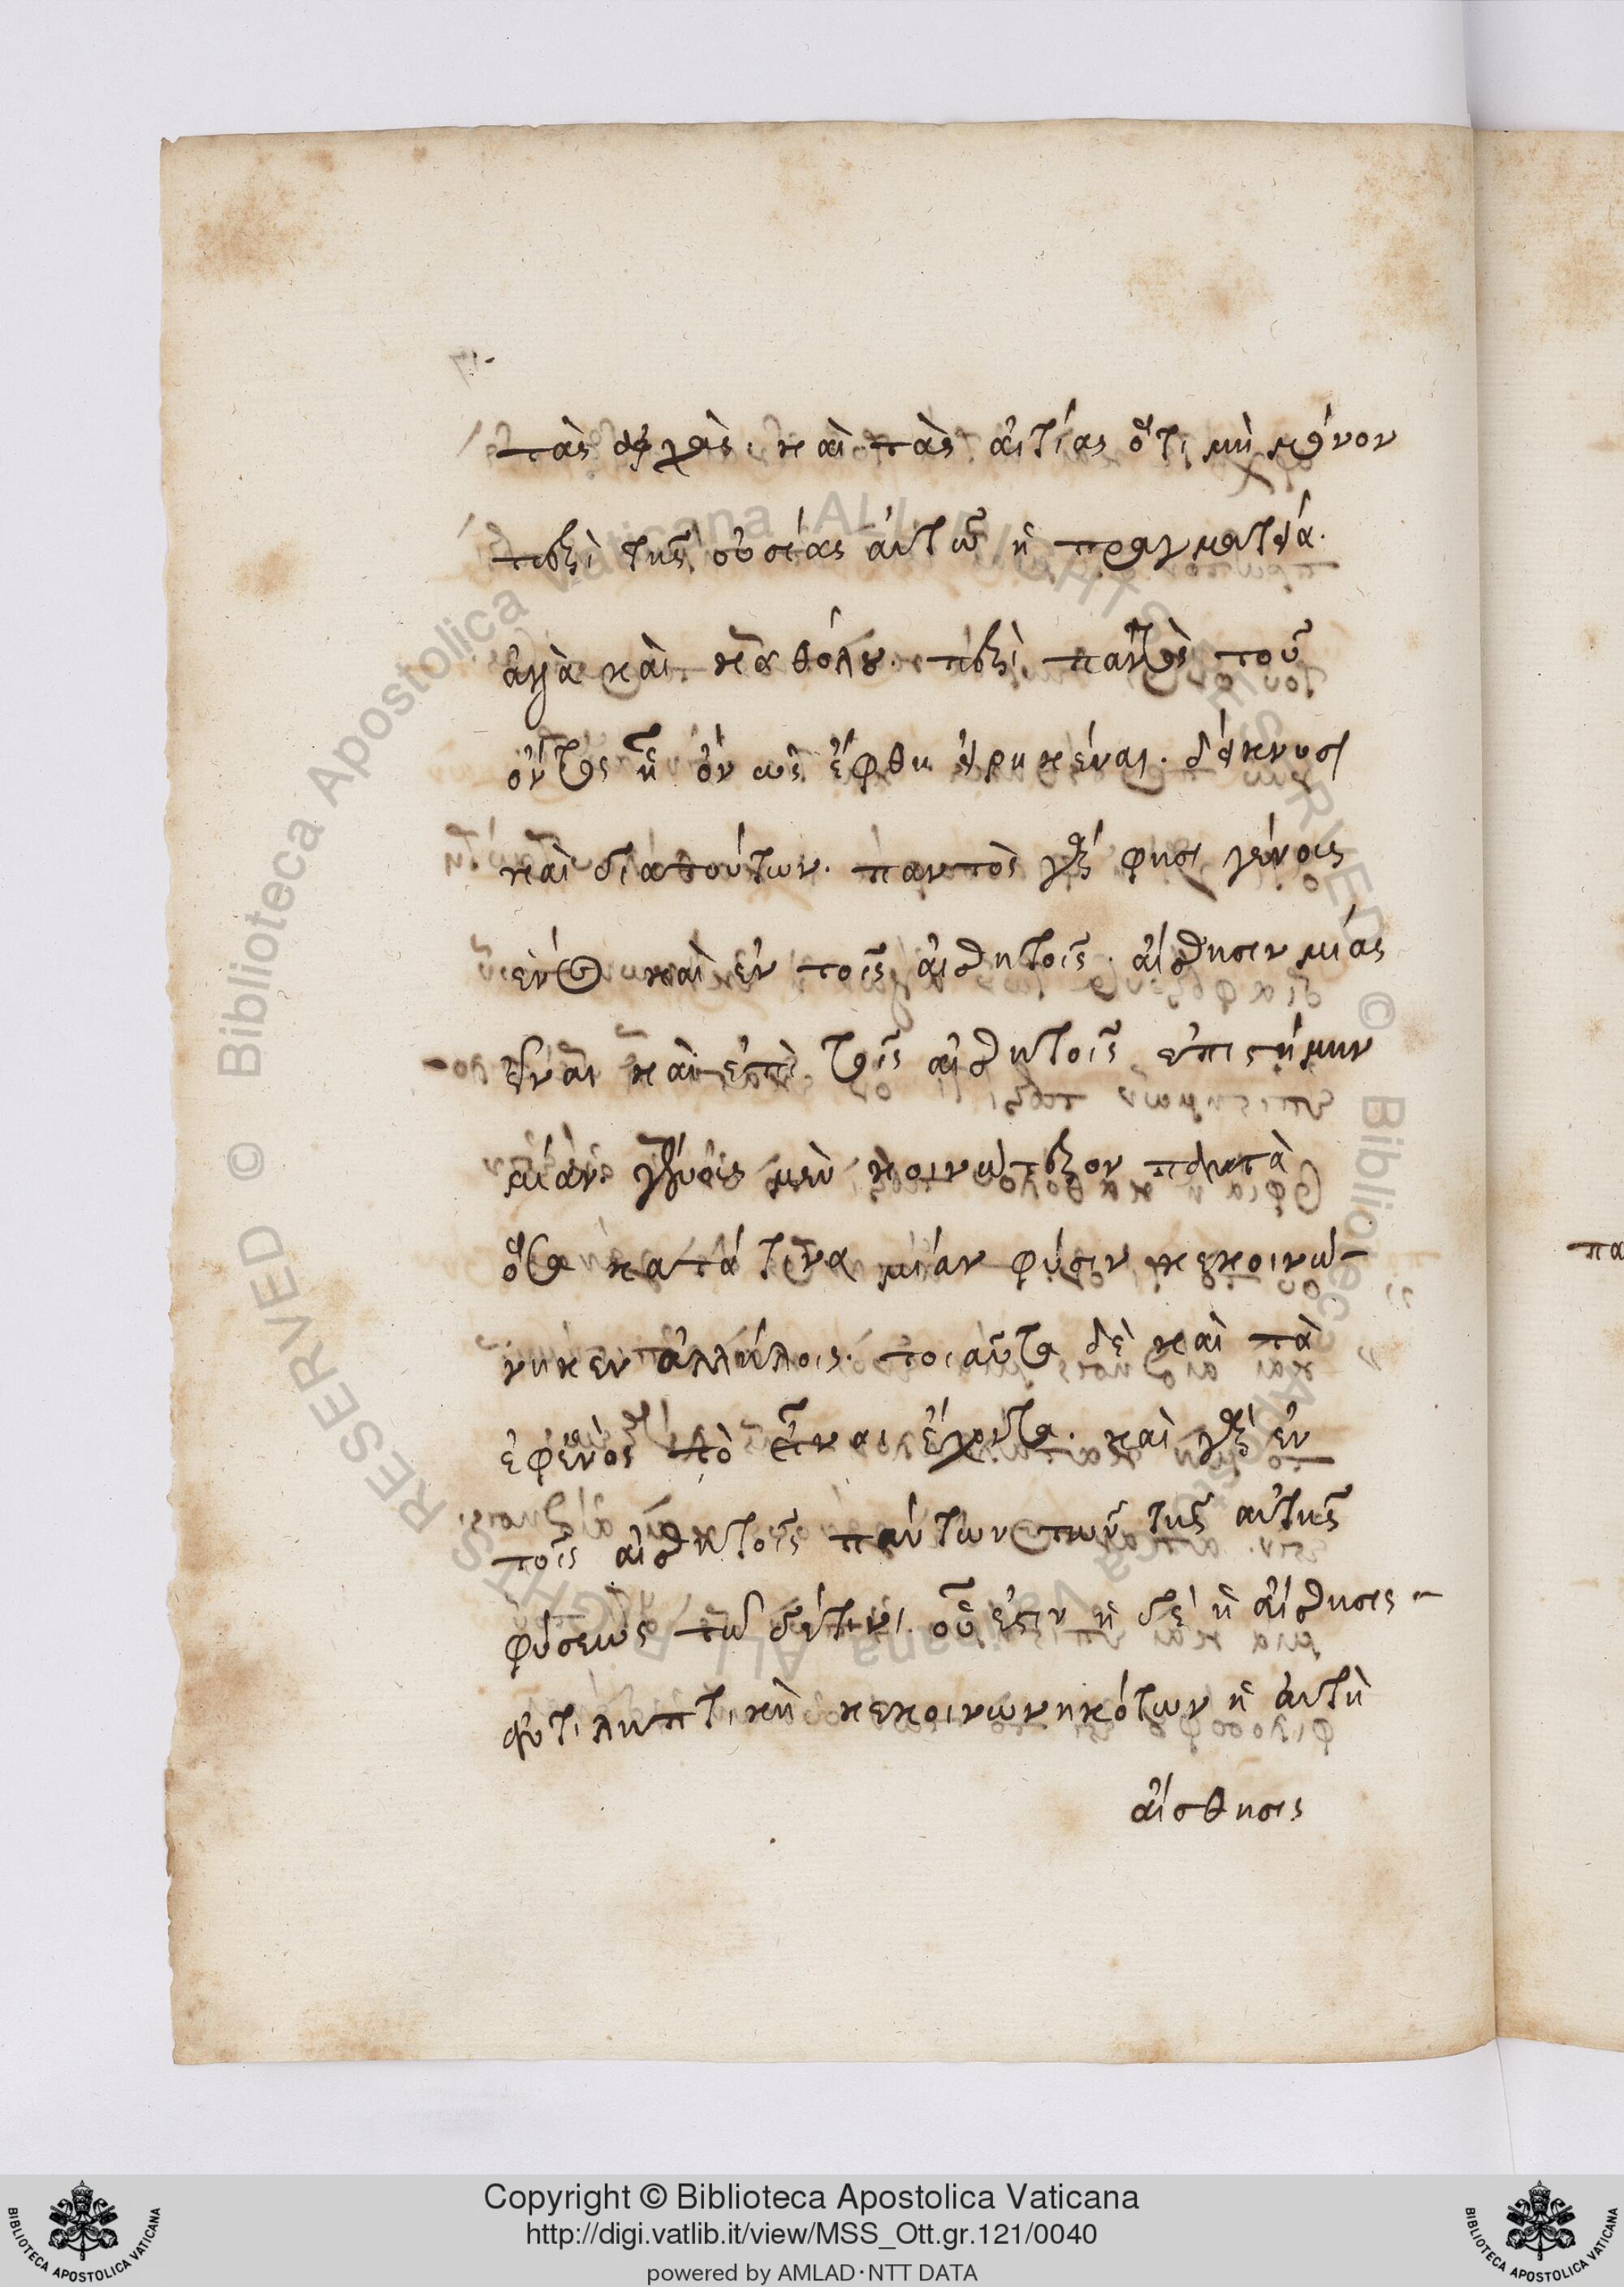 τὰς ἀρχὰς. καὶ τὰς αἰτίας ὅτι μὴ μόνον
περὶ τῆς οὐσίας αὐτῶ ἡ πραγματεία.
ἀλλὰ καὶ καθόλου. περὶ παντὸς τοῦ
ὄντος ἧ ὄν ὡς ἔφθη εἰρηκέναι. δείκνυσι
καὶ διατούτων. παντὸς γάρ φησι γένους
ἑνὸς καὶ ἐν τοῖς αἰσθητοῖς. αἴσθησιν μίας
εἶναι καὶ ἐπὶ τοῖς αἰσθητοῖς ἐπιστήμην
μίαν. γένους μὲν κοινώτερον
ὅσα κατά τινα μίαν φύσιν κεκοινώ-
νηκεν ἀλλήλοις. τοιαῦτα δὲ καὶ τὰ
ἐφενὸς τὸ εἶναι ἔχοντα. καὶ γάρ ἐν
τοῖς αἰσθητοῖς πάντων τῶν τῆς αὐτῆς
φύσεως οὗ ἐστιν ἡ δὲ ἡ αἴσθησις
ἀντιληπτικὴ κεκοινωνηκότων ἡ αὐτὴ
αἴσθησις
Copyright © Biblioteca Apostolica Vaticana
http://digi.vatlib.it/view/MSS_Ott.gr.121/0040
powered by AMLAD·NTT DATA
BIBLIOTECA APOSTOLICA VATICANA
BIBLIOTECA APOSTOLICA VATICANA